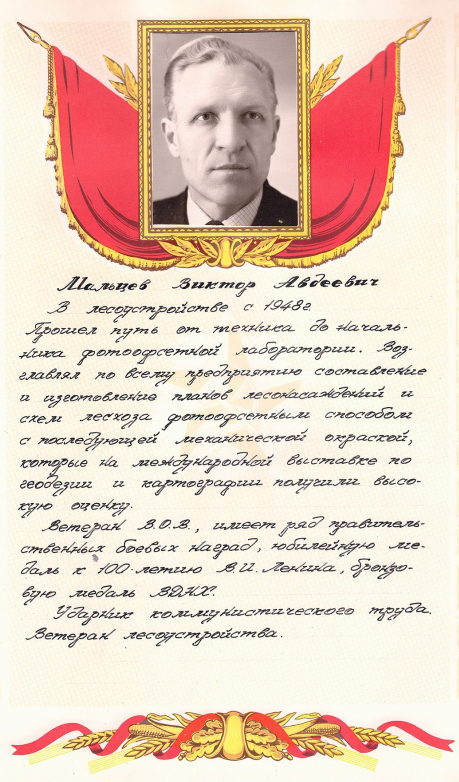 Мальцев Виктор Авдеевич
В лесоустройстве с 1948г
Прошел путь от техника до началь-
ника фотоофсетной лаборатории. Воз-
главлял по всему предприятию составление
и изготовление планов лесонасаждений и
схем лесхоза фотоофсетным способом
с последующей механической окраской,
которые на международной выставке по
геодезии и картографии получили высо-
кую оценку.
Ветеран В.О.В., имеет ряд правитель-
ственных боевых наград, юбилейную ме-
даль к 100-летию В.И. Ленина, бронзо-
вую медаль ВДНХ.
Ударник коммунистического труда.
Ветеран лесоустройства.